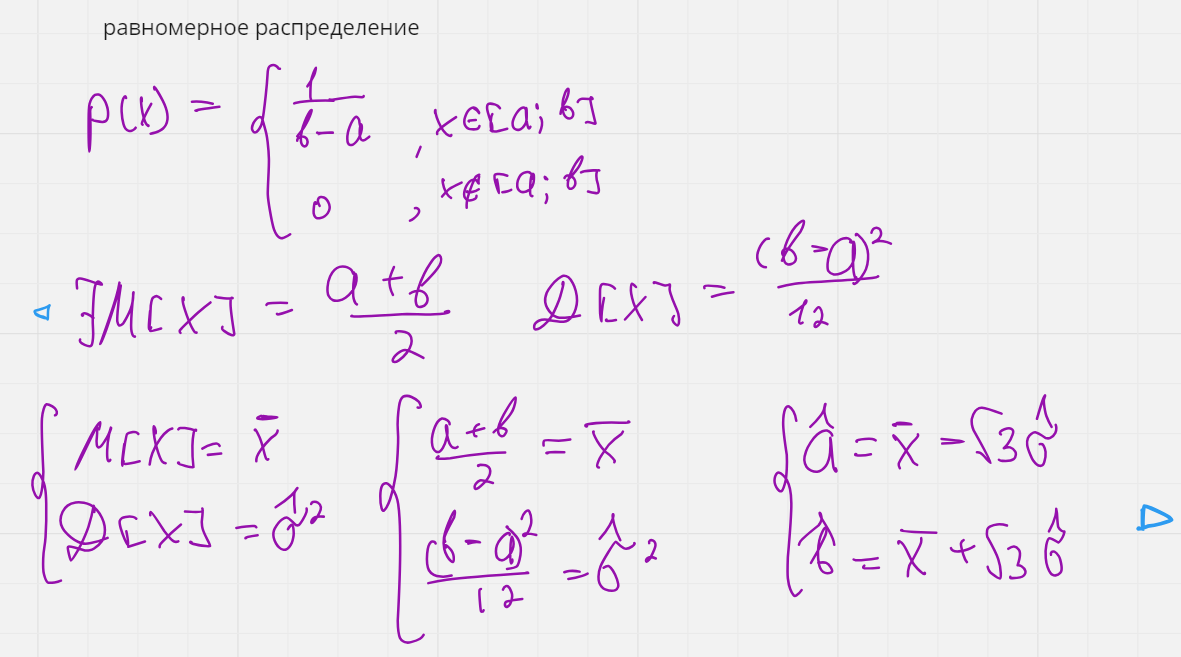 равномерное распределение
p(x) = { 1/(b-a) , x∈[a; b]
0 , x∉[a; b]
∃M[X] = (a+b)/2 D[X] = (b-a)²/12
{ M[X] = x̄ { (a+b)/2 = x̄ { â = x̄ - √3 σ̂
D[X] = σ̂² (b-a)²/12 = σ̂² b̂ = x̄ + √3 σ̂